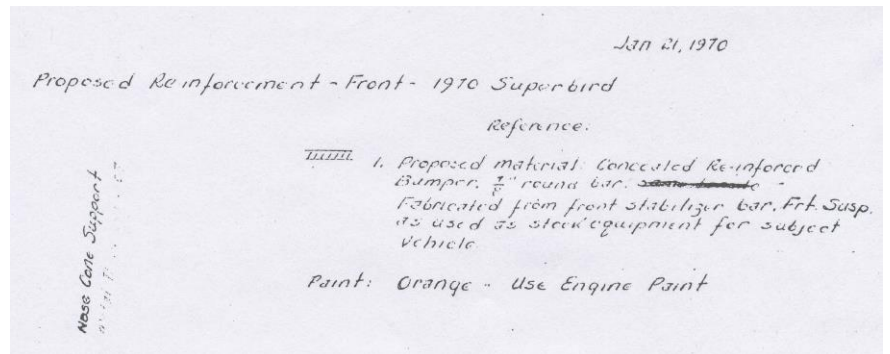 Jan 21, 1970
Proposed Reinforcement - Front - 1970 Superbird
Reference:
1. Proposed material: Concealed Re-inforced
Bumper. 7/8" round bar.
Fabricated from front stabilizer bar. Frt. Susp.
as used as stock equipment for subject
vehicle.
Paint: Orange - Use Engine Paint
Nose Cone Support